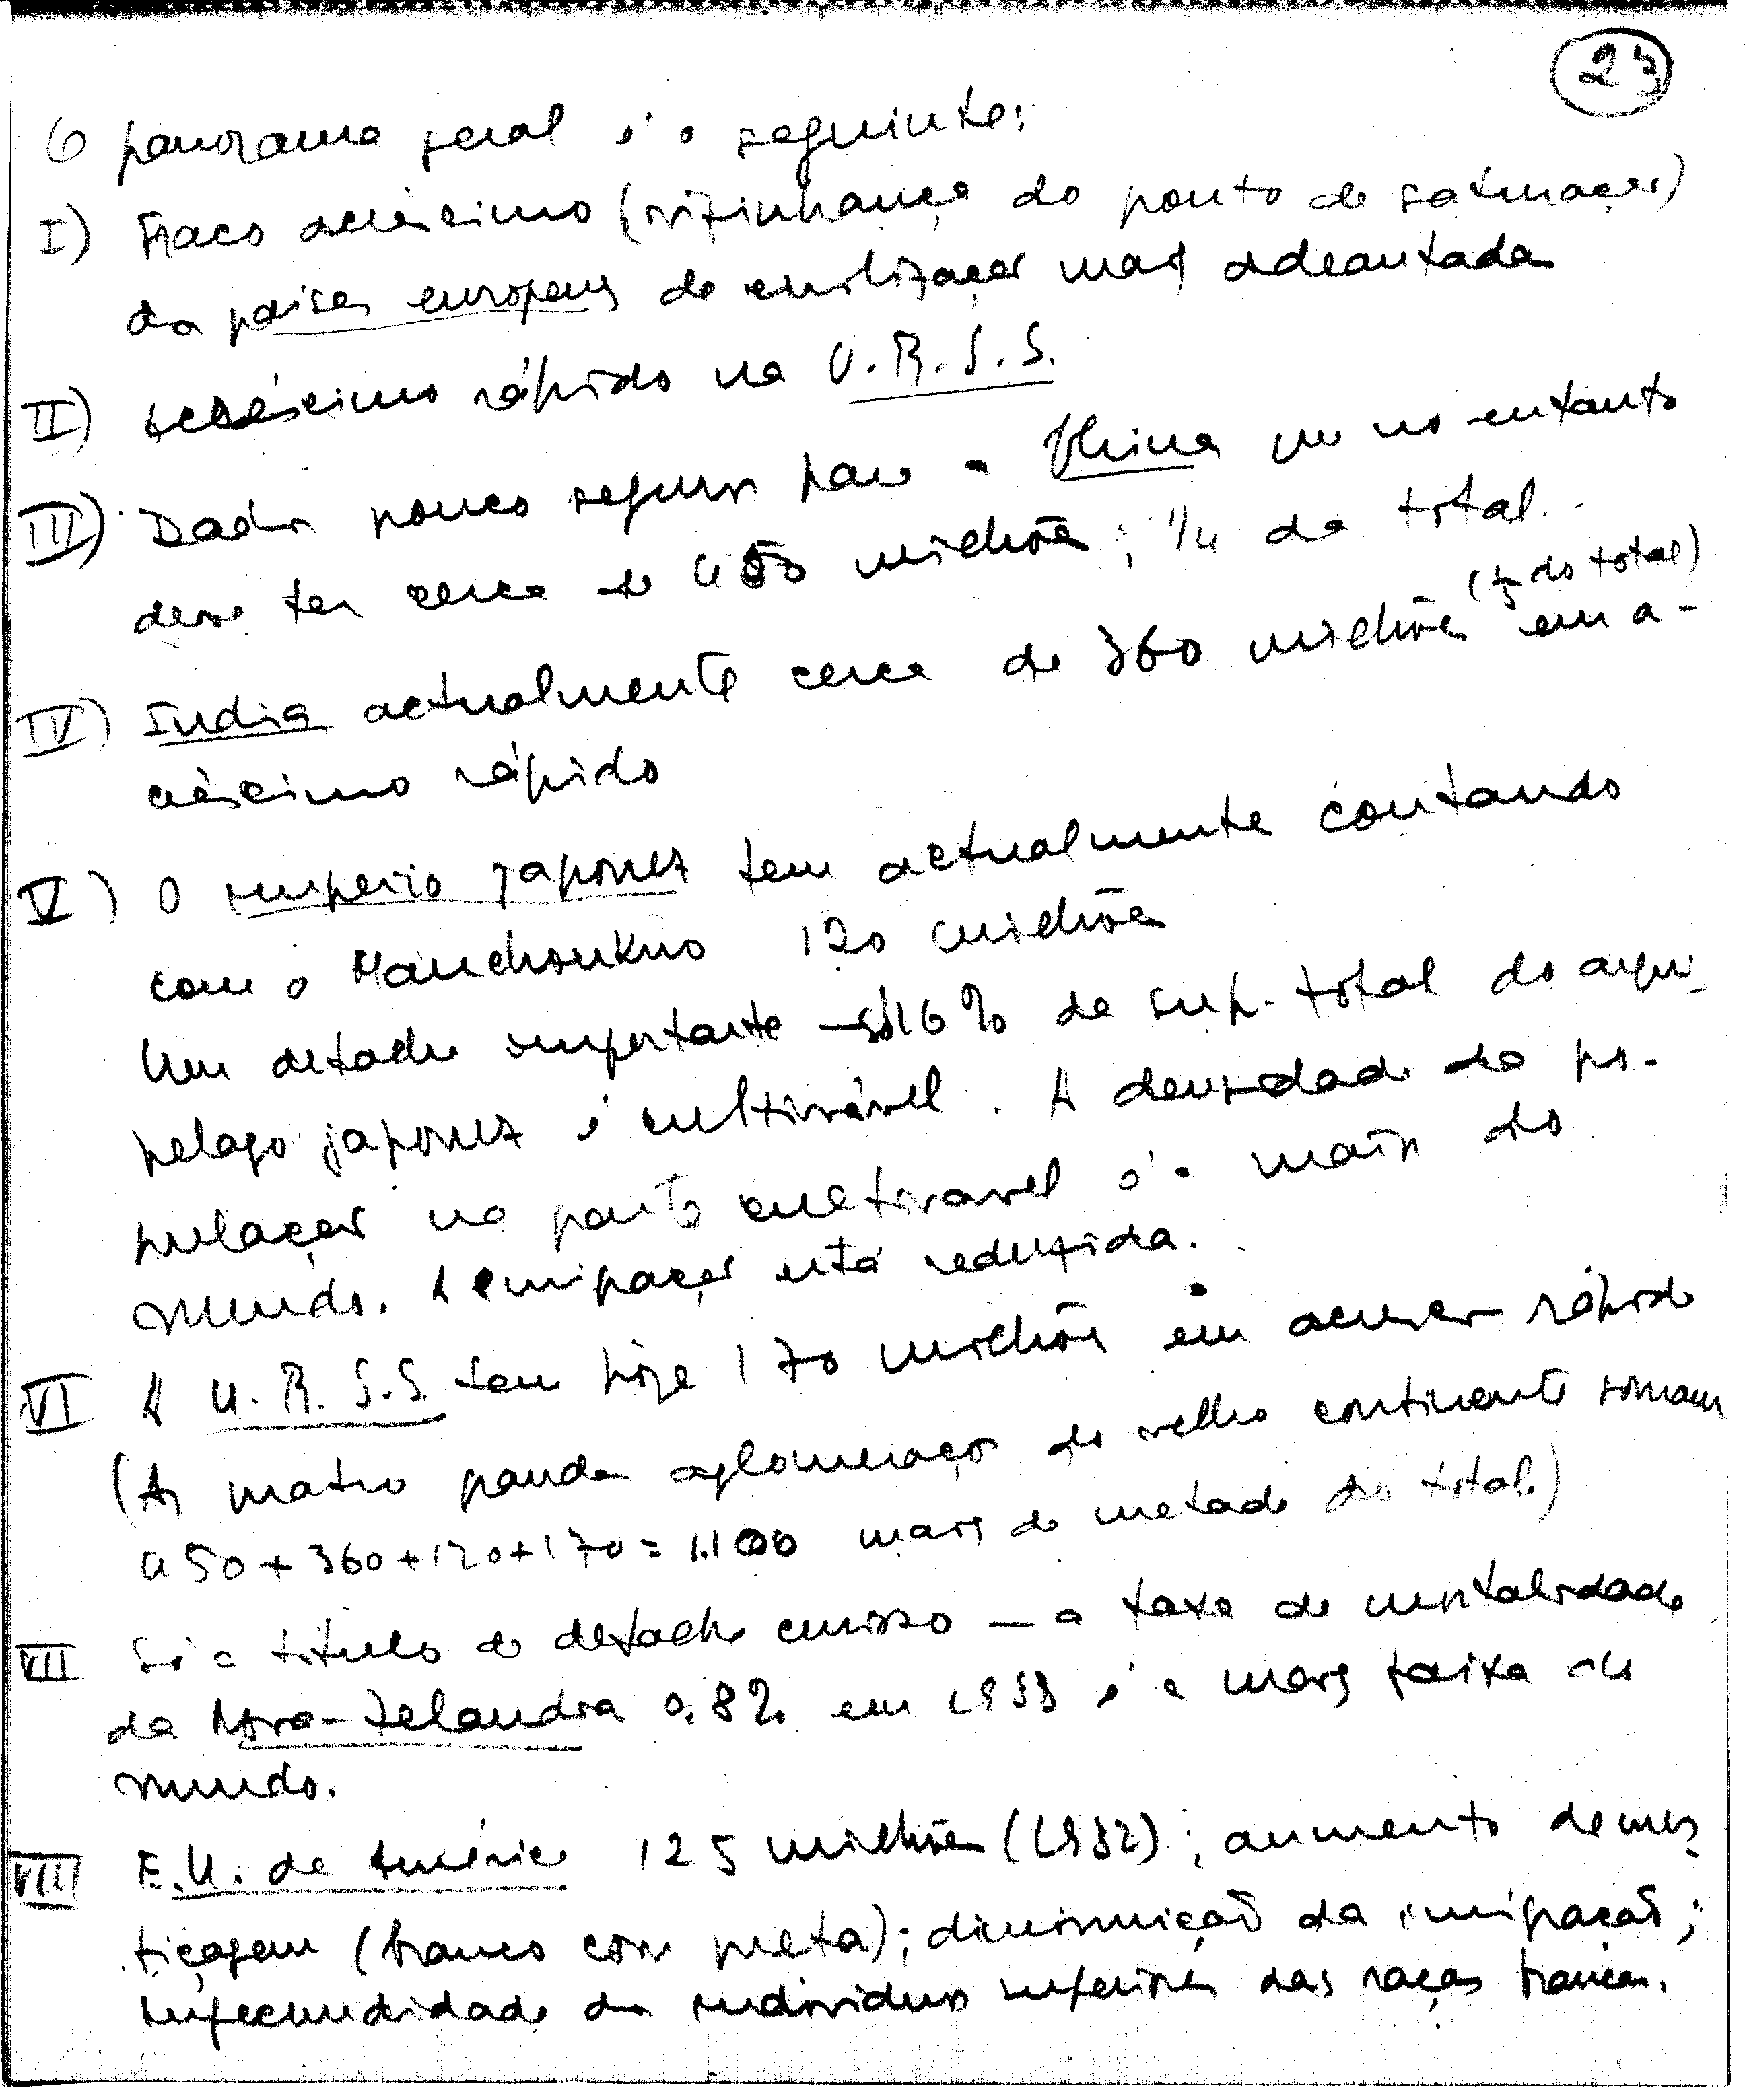 23
O panorama geral é o seguinte:
I) Fraco acréscimo (vizinhança do ponto de saturação)
dos países europeus de civilização mais adeantada
II) acréscimo rápido na U.R.S.S.
III) Dados pouco seguros para a China que no entanto
deve ter cerca de 450 milhões; 1/4 do total.
(1/5 do total)
IV) India actualmente cerca de 360 milhões em a-
créscimo rápido
V) O imperio japonez tem actualmente contando
com o Manchoukuo 120 milhões
Um detalhe importante – só 16% da sup. total do arqui-
pelago japonez é cultivável. A densidade da po-
pulação na parte cultivavel é a maior do
mundo. A emigração está reduzida.
VI A U.R.S.S. tem hoje 170 milhões em acrescer rápido
(As quatro grandes aglomerações do velho continente somam
450+360+120+170=1.100 mais de metade do total.)
VII Só a título de detalhe curioso – a taxa de mortalidade
da Nova-Zelandia 0,8% em 1933 é a mais baixa do
mundo.
VIII E.U. da América 125 milhões (1932); aumento de mes
tiçagem (branco com preta); diminuição da imigração;
infecundidade dos individuos superiores das raças brancas.